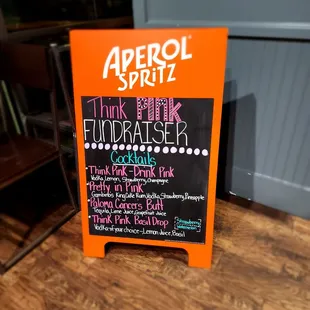 APEROL
SPRITZ
Think PINK
FUNDRAISER
Cocktails
Think Pink - Drink Pink
Vodka, Lemon, Strawberry, Champagne
Pretty in Pink
King Cake Rum Vodka, Strawberry, Pineapple
Paloma Cancers Butt
Tequila, Lime Juice, Grapefruit Juice
Think Pink Basil Drop
Vodka of your choice - Lemon Juice, Basil